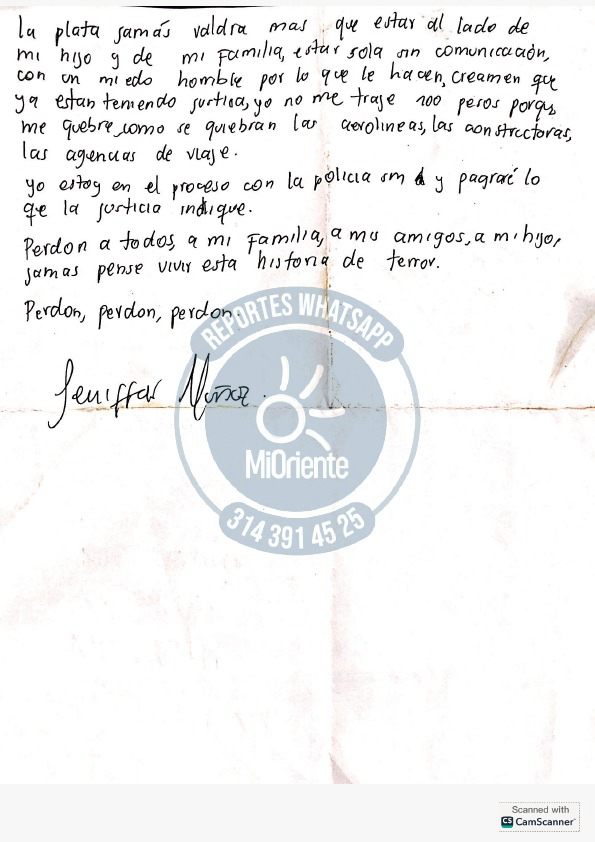 la plata jamás valdra mas que estar al lado de
mi hijo y de mi familia, estar sola sin comunicación,
con un miedo horrible por lo que le hacen, creamen que
ya estan teniendo justica, yo no me traje 100 pesos porque
me quebre como se quiebran las aerolineas, las constructoras,
las agencias de viaje.
yo estoy en el proceso con la policia sin y pagraré lo
que la justicia indique.
Perdon a todos, a mi familia, a mis amigos, a mi hijo,
jamas pense vivir esta historia de terror.
Perdon, perdon, perdon.
REPORTES WHATSAPP
Jeniffar Muñoz.
MiOriente
314 391 45 25
Scanned with
CS CamScanner